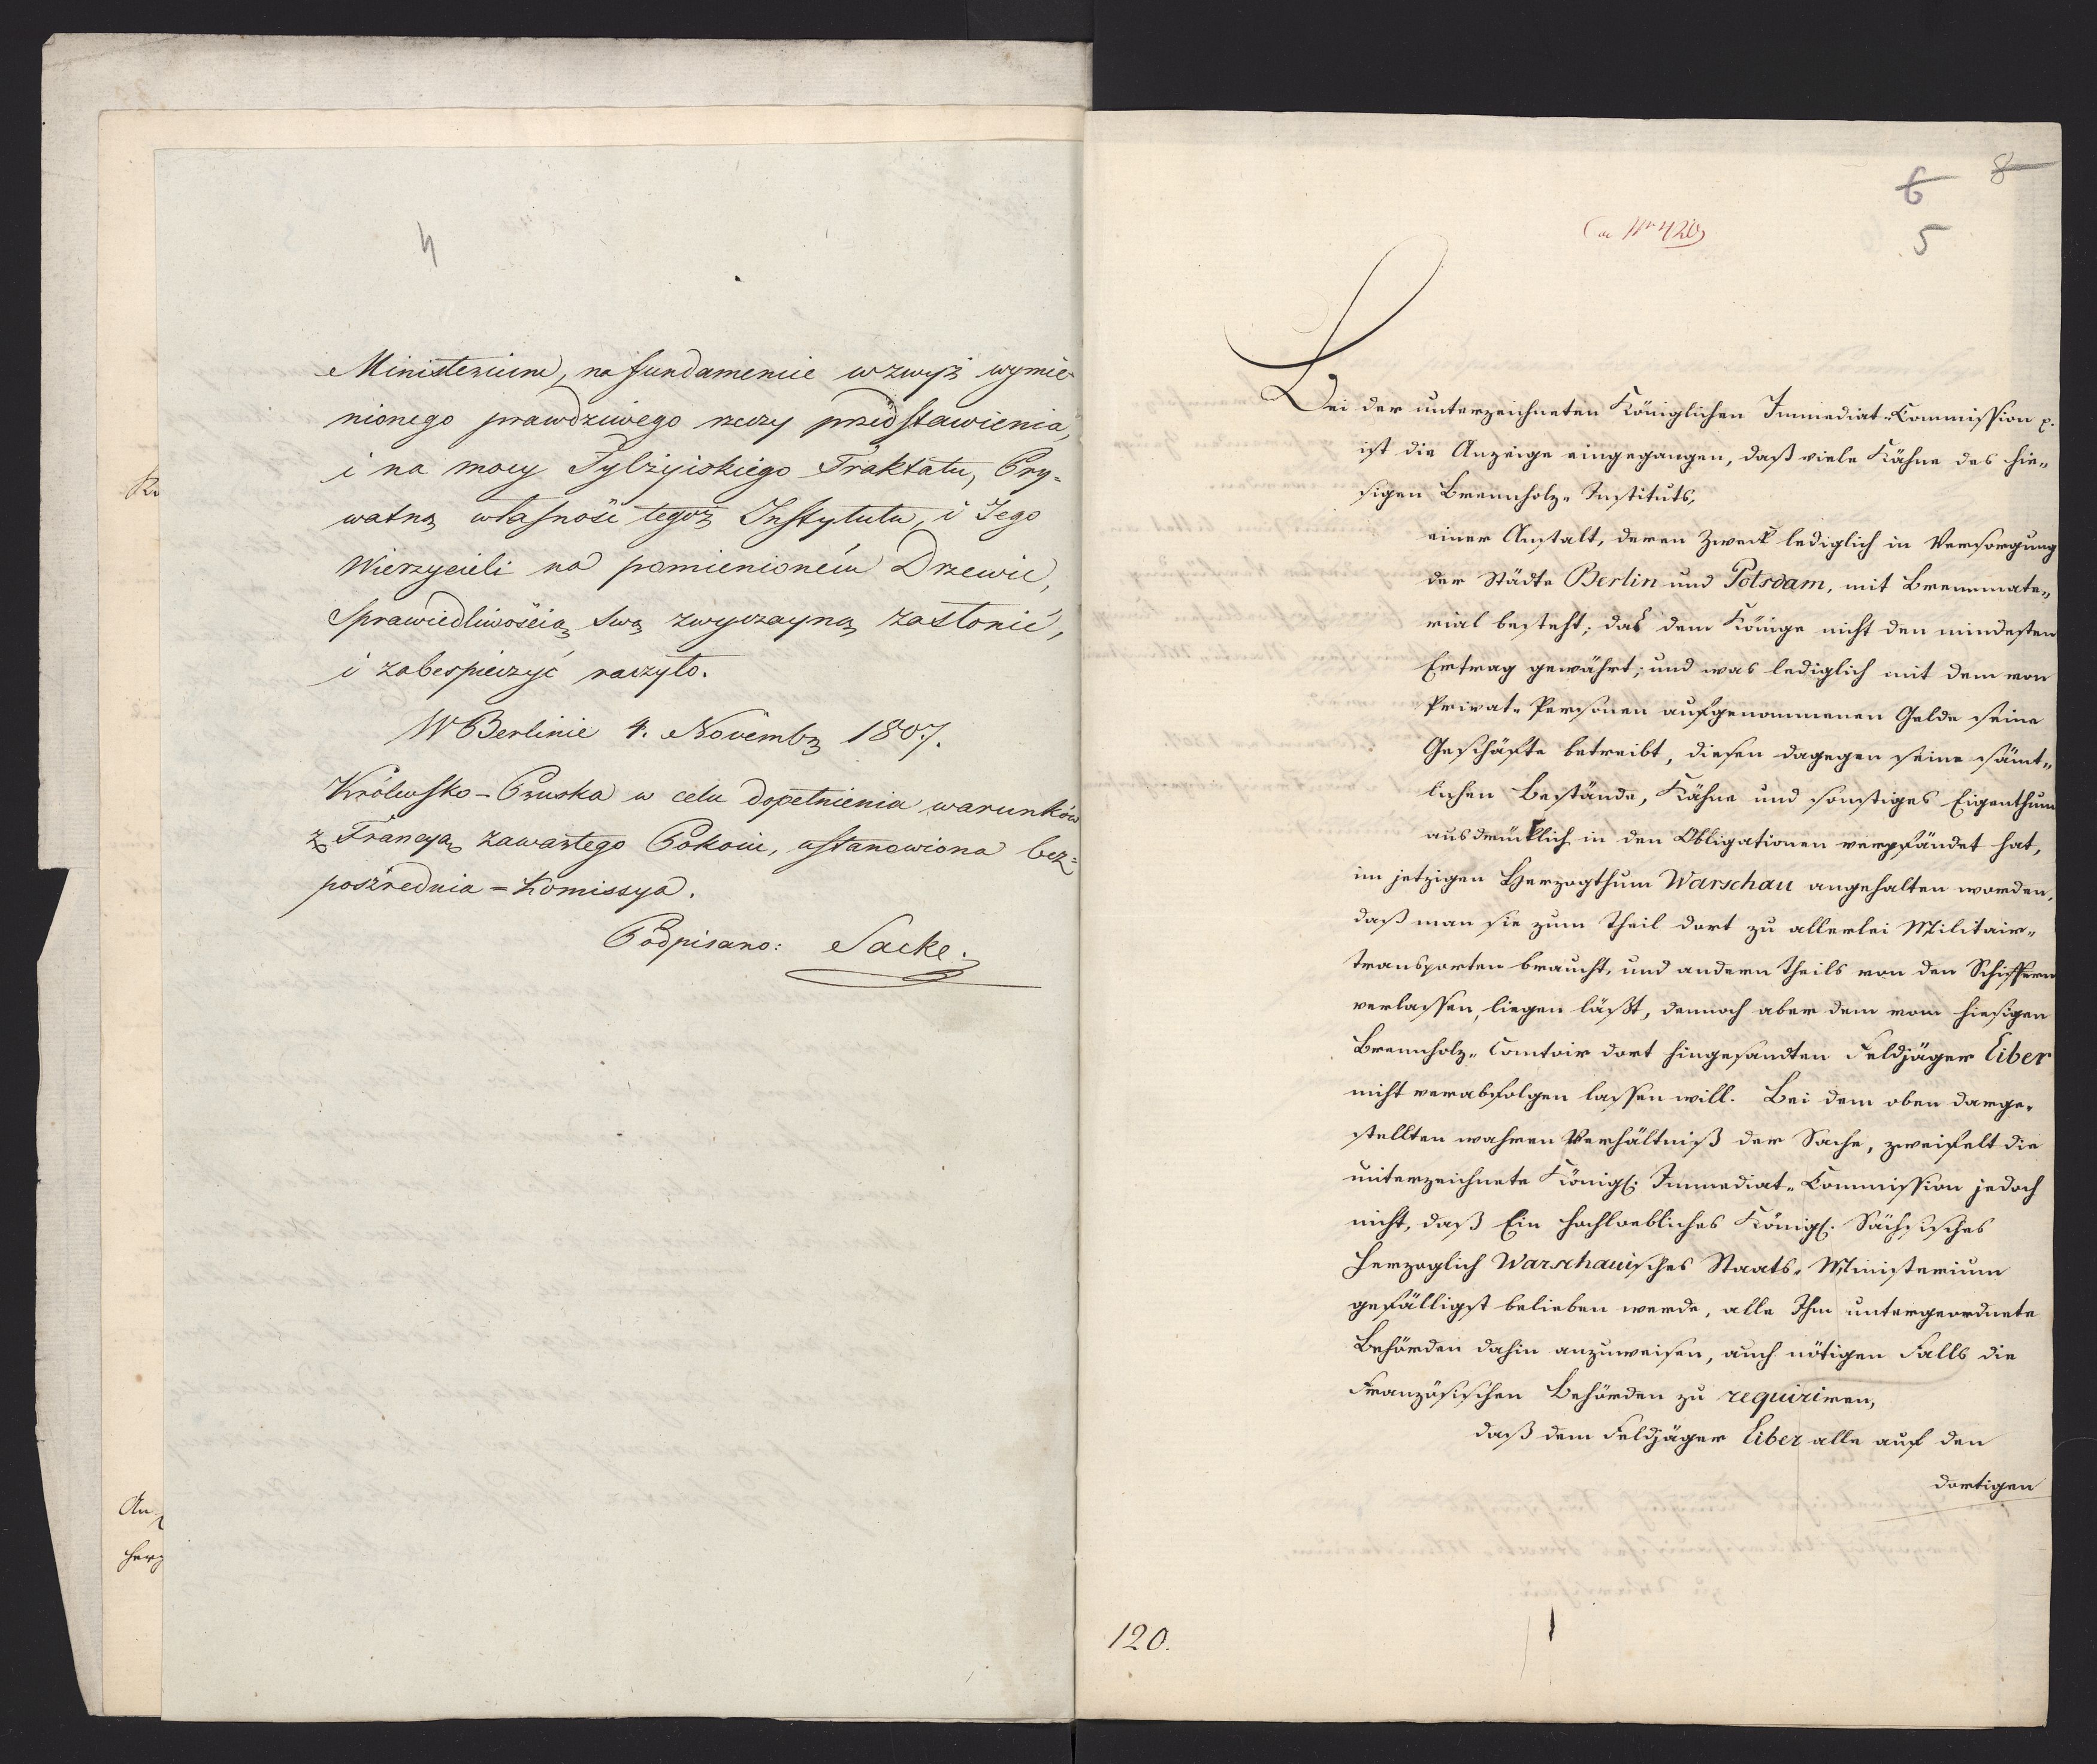 4
Ministerium, na fundamencie wzwyż wymie-
nionego prawdziwego rzeczy przedstawienia,
i na mocy Tylżyiskiego Traktatu, Pry-
watną własność tegoż Instytutu, i Jego
Wierzycieli na pomienioném Drzewie,
Sprawiedliwością swą zwyczayną zasłonić,
i zabespieczyć raczyło.
W Berlinie 4. Novembr 1807.
Królewsko-Pruska w celu dopełnienia warunków
z Francyą zawartego Pokoiu, ustanowiona bez=
pośrzednia=Komissya.
Podpisano: Sacke.
An
Herz
6 8
5
Nro 420
Bei der unterzeichneten Königlichen Immediat-Commission p.
ist die Anzeige eingegangen, daß viele Kähne des hie-
sigen Brennholz-Instituts,
einer Anstalt, deren Zweck lediglich in Versorgung
der Städte Berlin und Potsdam, mit Brennmate-
rial besteht; das dem Könige nicht den mindesten
Ertrag gewährt; und was lediglich mit dem von
Privat-Personen aufgenommenen Gelde seine
Geschäfte betreibt, diesen dagegen seine sämt-
lichen Bestände, Kähne und sonstiges Eigenthum
ausdrücklich in den Obligationen verpfändet hat,
im jetzigen Herzogthum Warschau angehalten worden,
daß man sie zum Theil dort zu allerlei Militair-
transporten braucht, und andern Theils von den Schiffern
verlassen, liegen läßt, dennoch aber dem vom hiesigen
Brennholz-Comtoir dort hingesandten Feldjäger Liber
nicht verabfolgen lassen will. Bei dem oben darge-
stellten wahren Verhältniß der Sache, zweifelt die
unterzeichnete Königl. Immediat-Commission jedoch
nicht, daß Ein hochloebliches Königl. Sächsisches
Herzoglich Warschauisches Staats-Ministerium
gefälligst belieben werde, alle Ihm untergeordnete
Behörden dahin anzuweisen, auch nötigen Falls die
Französischen Behörden zu requiriren,
daß dem Feldjäger Liber alle auf den
dortigen
120.